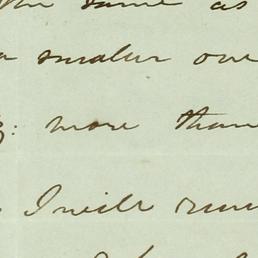 the same as
a smaler one
more than
I will run